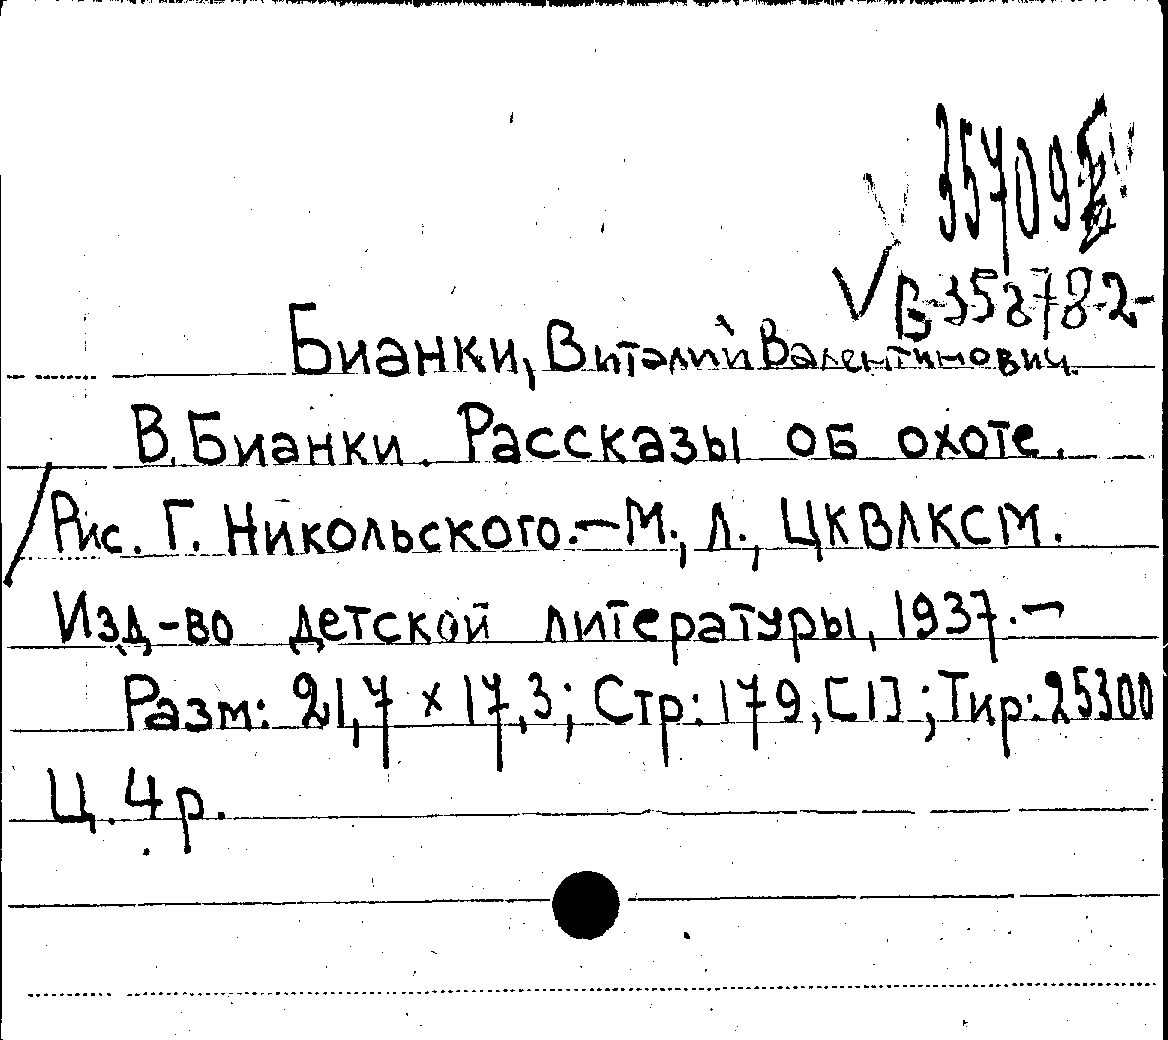 В-353782-
Бианки, Виталий Валентинович.
В. Бианки. Рассказы об охоте.
Рис. Г. Никольского. — М., Л., ЦКВЛКСМ.
Изд-во детской литературы, 1937. —
Разм: 21,7 х 17,3; Стр: 179, [1]; Тир: 25300
Ц. 4 р.